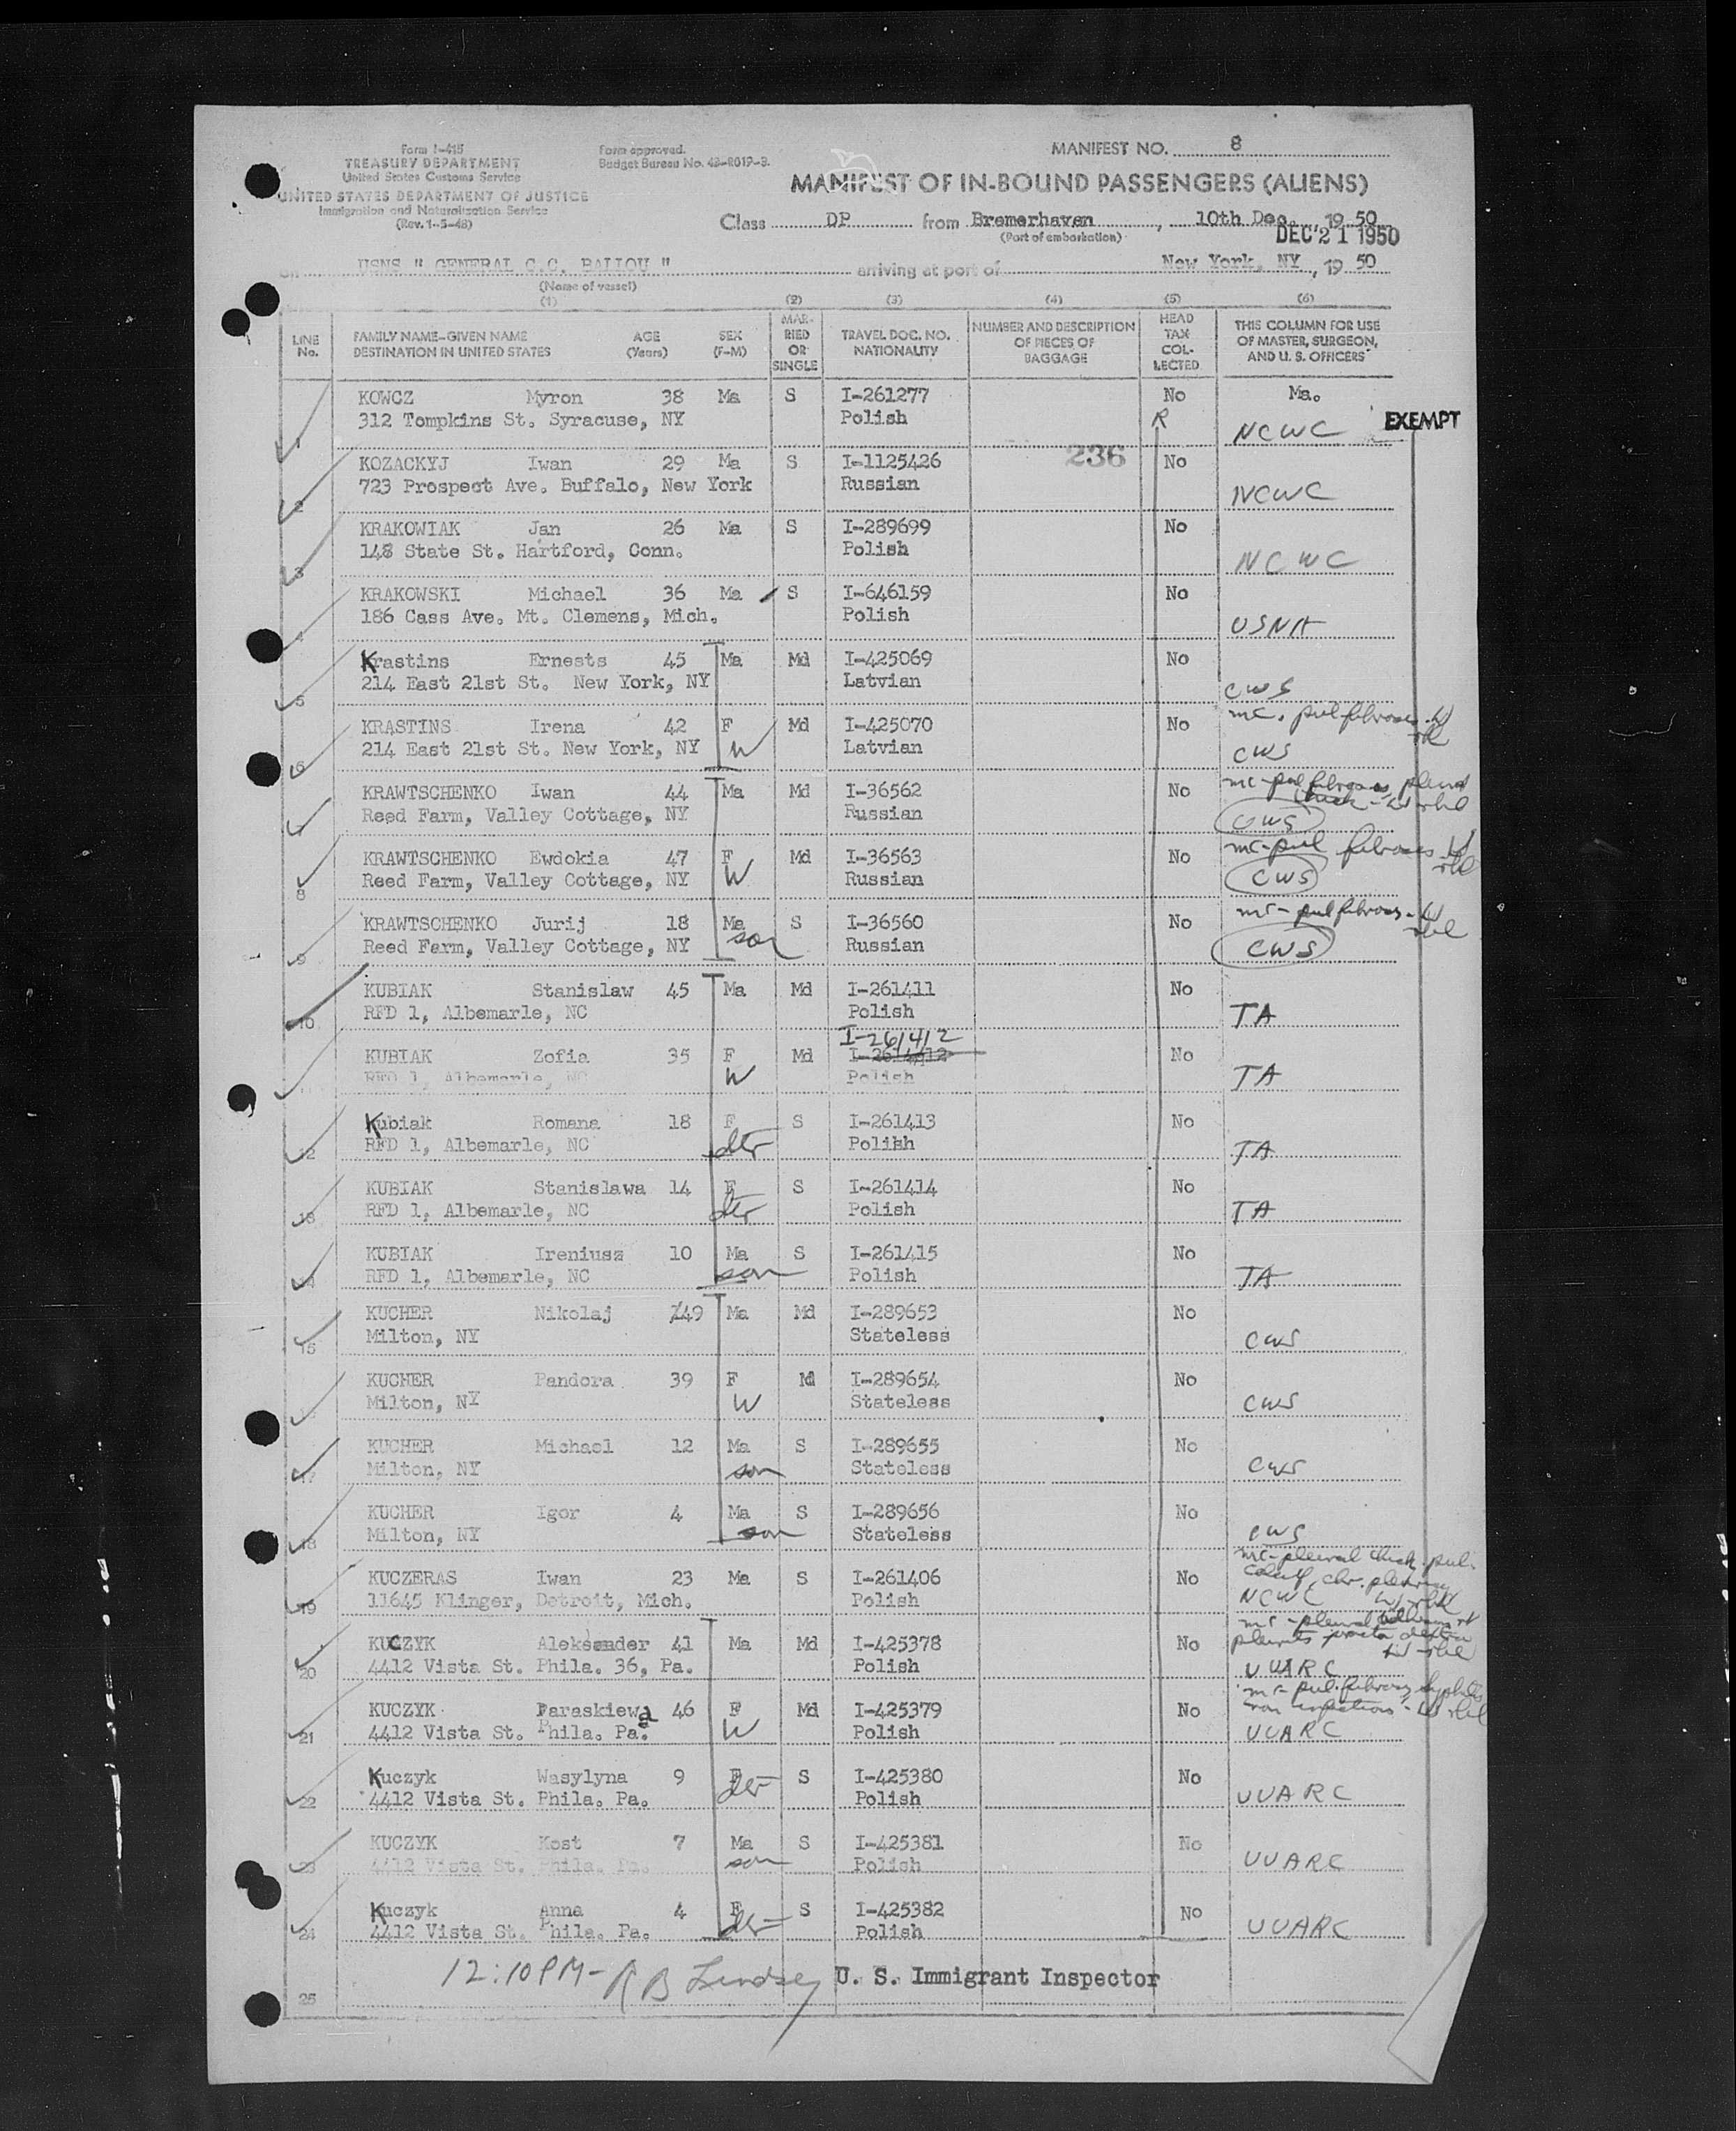 Form I-415
TREASURY DEPARTMENT
United States Customs Service
UNITED STATES DEPARTMENT OF JUSTICE
Immigration and Naturalization Service
(Rev. 1-5-48)
Form approved.
Budget Bureau No. 43-R019-3.
MANIFEST NO. 8
MANIFEST OF IN-BOUND PASSENGERS (ALIENS)
Class DP from Bremerhaven, 10th Dec. 1950
(Port of embarkation)
DEC 21 1950
USNS " GENERAL C.C. BALLOU " arriving at port of New York, NY, 19 50
(Name of vessel)
(1) (2) (3) (4) (5) (6)
LINE No. FAMILY NAME-GIVEN NAME DESTINATION IN UNITED STATES AGE (Years) SEX (F-M) MARRIED OR SINGLE TRAVEL DOC. NO. NATIONALITY NUMBER AND DESCRIPTION OF PIECES OF BAGGAGE HEAD TAX COLLECTED THIS COLUMN FOR USE OF MASTER, SURGEON, AND U. S. OFFICERS
KOWCZ Myron 38 Ma S I-261277 No Ma.
1 312 Tompkins St. Syracuse, NY Polish R NCWC EXEMPT
KOZACKYJ Iwan 29 Ma S I-1125426 236 No
2 723 Prospect Ave. Buffalo, New York Russian NCWC
KRAKOWIAK Jan 26 Ma S I-289699 No
3 148 State St. Hartford, Conn. Polish NCWC
KRAKOWSKI Michael 36 Ma S I-646159 No
4 186 Cass Ave. Mt. Clemens, Mich. Polish USNA
Krastins Ernests 45 Ma Md I-425069 No
5 214 East 21st St. New York, NY Latvian CWS
KRASTINS Irena 42 F Md I-425070 No mc. pul fibroses
6 214 East 21st St. New York, NY W Latvian CWS
KRAWTSCHENKO Iwan 44 Ma Md I-36562 No mc-pul fibroses pleural thick
7 Reed Farm, Valley Cottage, NY Russian CWS
KRAWTSCHENKO Ewdokia 47 F Md I-36563 No mc-pul fibroses
8 Reed Farm, Valley Cottage, NY W Russian CWS
KRAWTSCHENKO Jurij 18 Ma S I-36560 No mc-pul fibroses
9 Reed Farm, Valley Cottage, NY son Russian CWS
KUBIAK Stanislaw 45 Ma Md I-261411 No
10 RFD 1, Albemarle, NC Polish TA
I-261412
KUBIAK Zofia 35 F Md I-261412 No
RFD 1, Albemarle, NC W Polish TA
Kubiak Romana 18 F S I-261413 No
12 RFD 1, Albemarle, NC dtr Polish TA
KUBIAK Stanislawa 14 F S I-261414 No
13 RFD 1, Albemarle, NC dtr Polish TA
KUBIAK Ireniusz 10 Ma S I-261415 No
14 RFD 1, Albemarle, NC son Polish TA
KUCHER Nikolaj 49 Ma Md I-289653 No
15 Milton, NY Stateless CWS
KUCHER Pandora 39 F Md I-289654 No
Milton, NY W Stateless CWS
KUCHER Michael 12 Ma S I-289655 No
17 Milton, NY son Stateless CWS
KUCHER Igor 4 Ma S I-289656 No
18 Milton, NY son Stateless CWS
KUCZERAS Iwan 23 Ma S I-261406 No mc-pleural thick pul. calcif. chr.
19 11645 Klinger, Detroit, Mich. Polish NCWC
KUCZYK Aleksander 41 Ma Md I-425378 No mc-pleural
20 4412 Vista St. Phila. 36, Pa. Polish UUARC
KUCZYK Paraskiewa 46 F Md I-425379 No mc-pul. fibroses, syphilis non infectious
21 4412 Vista St. Phila. Pa. W Polish UUARC
Kuczyk Wasylyna 9 F S I-425380 No
22 4412 Vista St. Phila. Pa. dtr Polish UUARC
KUCZYK Kost 7 Ma S I-425381 No
23 4412 Vista St. Phila. Pa. son Polish UUARC
Kuczyk Anna 4 F S I-425382 No
24 4412 Vista St. Phila. Pa. dtr Polish UUARC
12:10 PM- R B Lindsey U. S. Immigrant Inspector
25